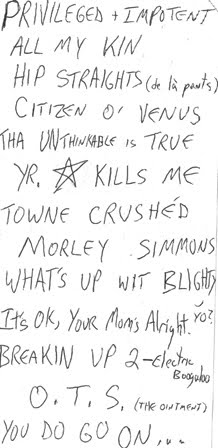 PRIVILEGED + IMPOTENT
ALL MY KIN
HIP STRAIGHTS (de là pants)
CITIZEN O' VENUS
THA UNThinkable is TRUE
YR. ☆ KILLS ME
TOWNE CRUSHÉD
MORLEY SIMMONS
WHAT'S UP WIT BLIGHTY
It's OK, Your Mom's Alright. YO?
BREAKIN UP 2-Electric
Boogaloo
O. T. S. (THE OINTMENT)
YOU DO GO ON...